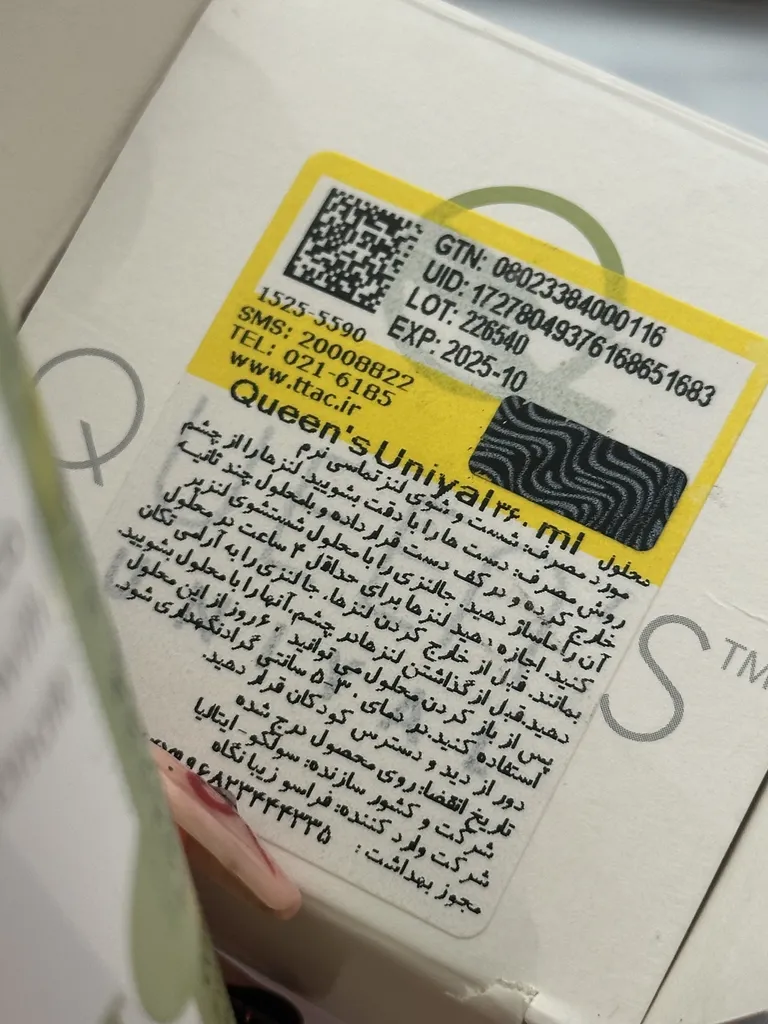 GTN: 08023384000116
UID: 17278049376168651683
LOT: 226540
EXP: 2025-10
1525-5590
SMS: 20008822
TEL: 021-6185
www.ttac.ir
محلول Queen's Uniyal ۳۶۰ ml
مورد مصرف: شست و شوی لنز تماسی نرم
روش مصرف: دست ها را با دقت بشویید. لنزها را از چشم
خارج کرده و در کف دست قرار داده و با محلول چند ثانیه
آن را ماساژ دهید. جالنزی را با محلول شستشوی لنز پر
کنید. اجازه دهید لنزها برای حداقل ۴ ساعت در محلول
بمانند. قبل از خارج کردن لنزها، جا لنزی را به آرامی تکان
دهید. قبل از گذاشتن لنزها در چشم، آنها را با محلول بشویید.
پس از باز کردن محلول می توانید ۶۰ روز از این محلول
استفاده کنید. در دمای ۳۰-۵ سانتی گراد نگهداری شود.
دور از دید و دسترس کودکان قرار دهید.
تاریخ انقضا: روی محصول درج شده
شرکت و کشور سازنده: سولکو - ایتالیا
شرکت وارد کننده: فراسو زیبا نگاه
مجوز بهداشت:
Q
S™